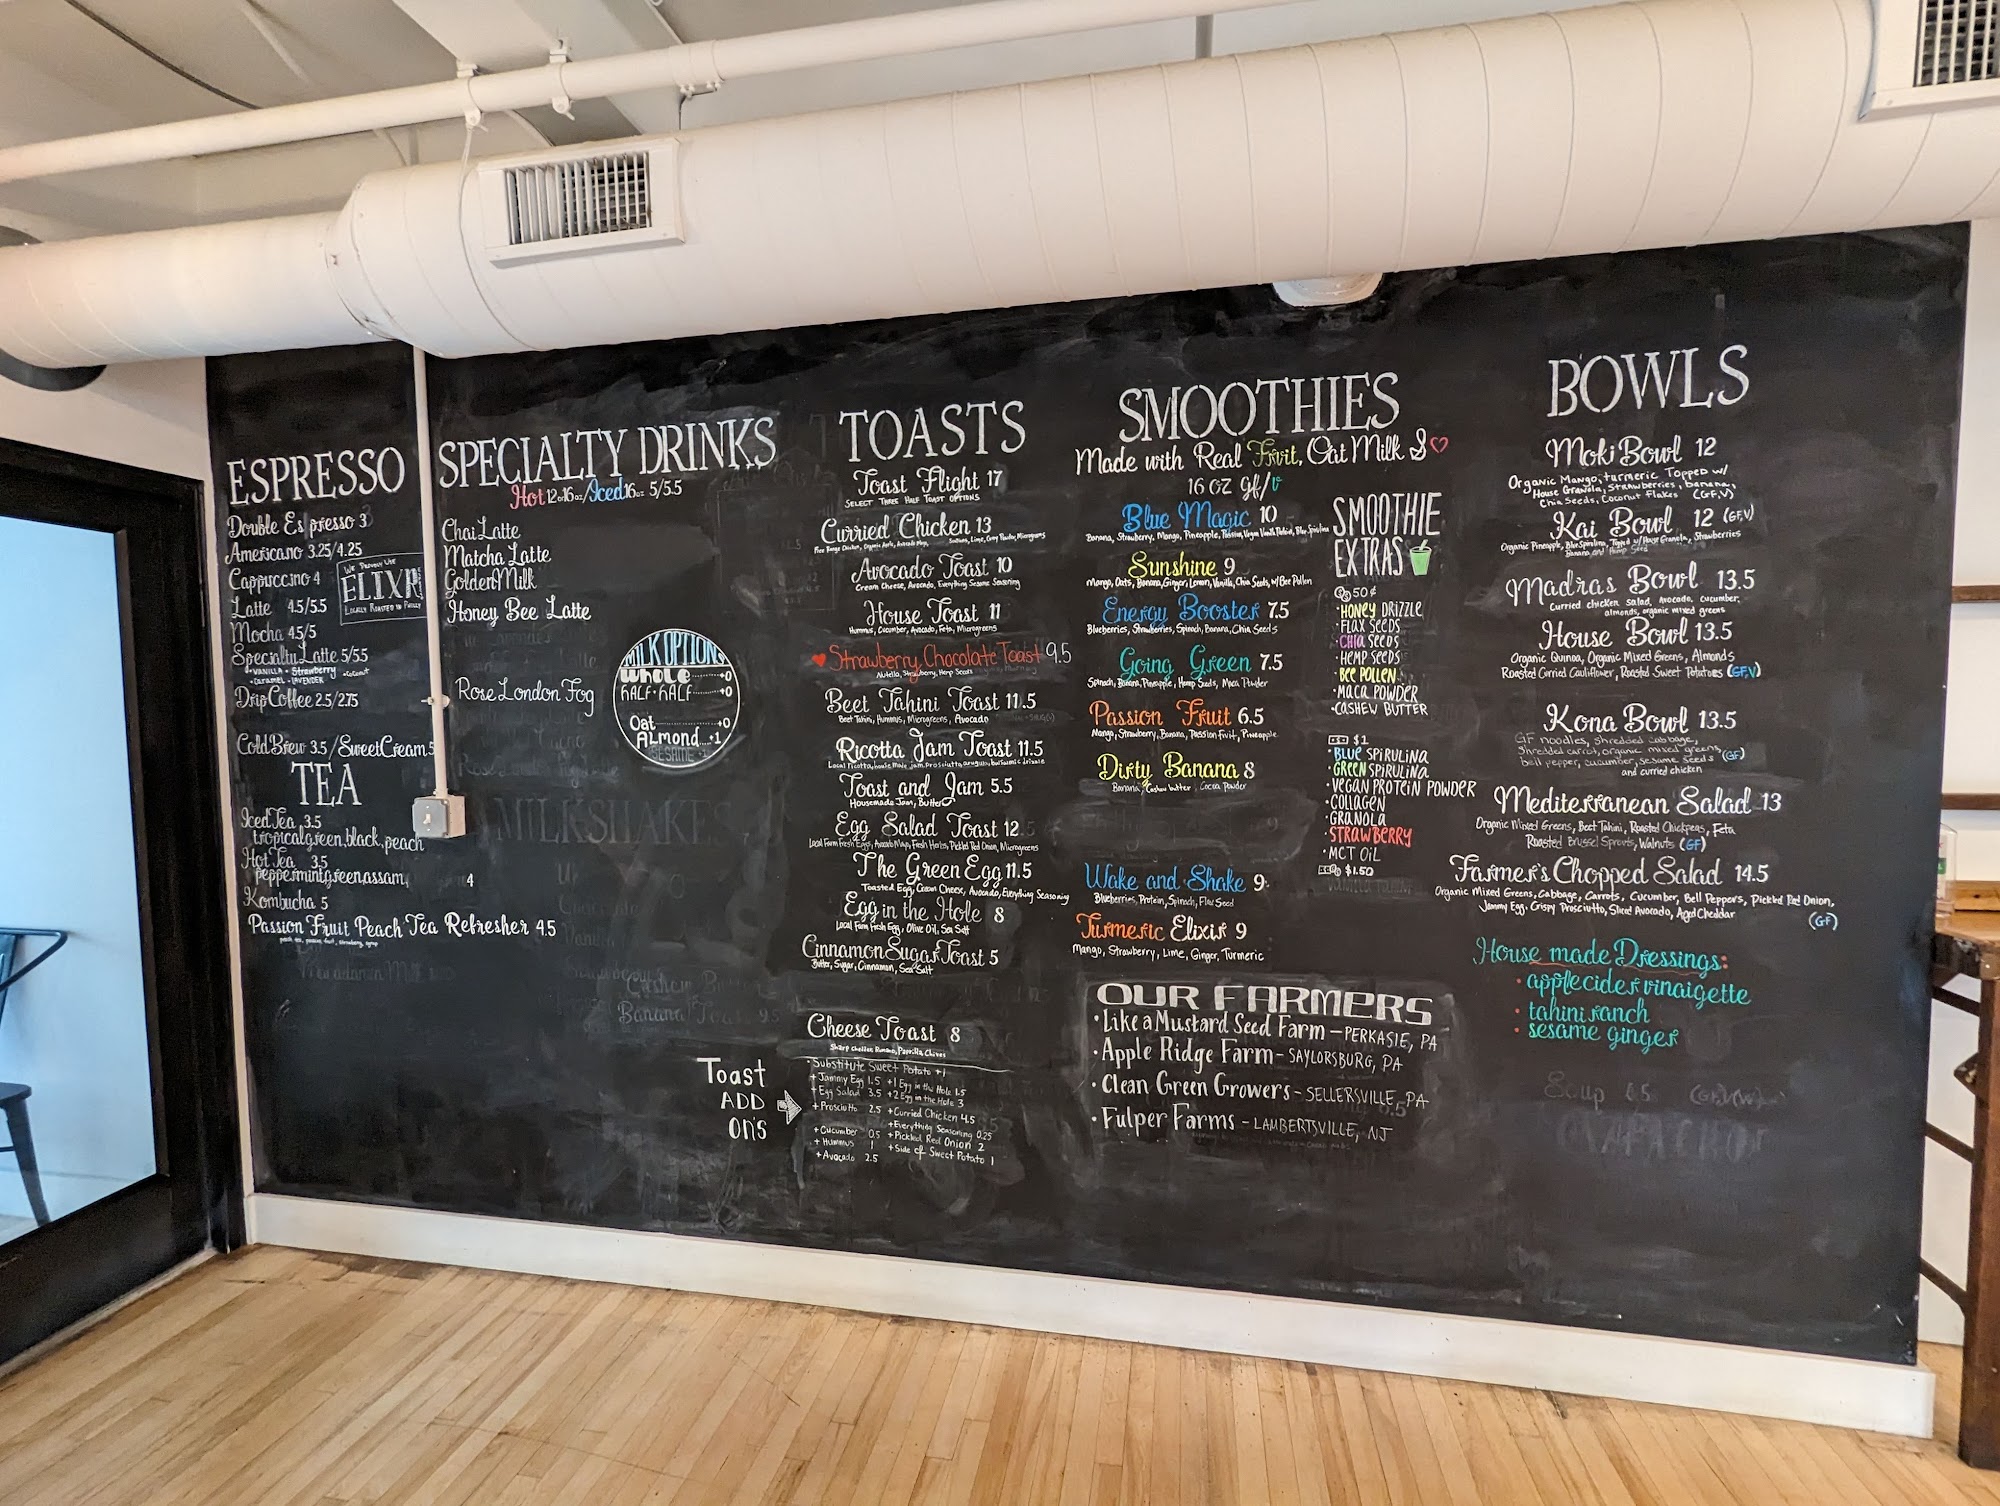 ESPRESSO
Double Espresso 3
Americano 3.25/4.25
Cappuccino 4
Latte 4.5/5.5
Mocha 4.5/5
Specialty Latte 5/5.5
•VANILLA •Strawberry •Coconut
•CARAMEL •LAVENDER
Drip Coffee 2.5/2.75
Cold Brew 3.5/Sweet Cream 5
WE PROUDLY USE
ELIXR
LOCALLY ROASTED IN PHILLY
TEA
Iced Tea 3.5
tropical green, black, peach
Hot Tea 3.5
peppermint, green, assam,
4
Kombucha 5
Passion Fruit Peach Tea Refresher 4.5
SPECIALTY DRINKS
Hot 12oz 16oz/Iced 16oz 5/5.5
Chai Latte
Matcha Latte
Golden Milk
Honey Bee Latte
Rose London Fog
MILK OPTIONS
Whole +0
HALF•HALF +0
Oat +0
Almond +1
SESAME
MILKSHAKE
TOASTS
Toast Flight 17
SELECT THREE HALF TOAST OPTIONS
Curried Chicken 13
Free Range Chicken, Organic Apple, Avocado Mayo, Scallions, Lime, Curry Powder, Microgreens
Avocado Toast 10
Cream Cheese, Avocado, Everything Seasoning
House Toast 11
Hummus, Cucumber, Avocado, Feta, Microgreens
Strawberry Chocolate Toast 9.5
Nutella, Strawberry, Hemp Seeds
Beet Tahini Toast 11.5
Beet Tahini, Hummus, Microgreens, Avocado
Ricotta Jam Toast 11.5
Local ricotta, house made jam, prosciutto, arugula, balsamic drizzle
Toast and Jam 5.5
Housemade Jam, Butter
Egg Salad Toast 12
Local Farm Fresh Eggs, Avocado Mayo, Fresh Herbs, Pickled Red Onion, Microgreens
The Green Egg 11.5
Toasted Egg, Cream Cheese, Avocado, Everything Seasoning
Egg in the Hole 8
Local Farm Fresh Egg, Olive Oil, Sea Salt
Cinnamon Sugar Toast 5
Butter, Sugar, Cinnamon, Sea Salt
Cheese Toast 8
Toast
ADD
ON'S
Substitute Sweet Potato +1
+Jammy Egg 1.5 +1 Egg in the Hole 1.5
+Egg Salad 3.5 +2 Egg in the Hole 3
+Prosciutto 2.5 +Curried Chicken 4.5
+Everything Seasoning 0.25
+Cucumber 0.5 +Pickled Red Onion 2
+Hummus 1 +Side of Sweet Potato 1
+Avocado 2.5
SMOOTHIES
Made with Real Fruit, Oat Milk &
16 OZ gf/v
Blue Magic 10
Banana, Strawberry, Mango, Pineapple, Passion, Vegan Vanilla Protein, Blue Spirulina
Sunshine 9
Mango, Oats, Banana, Ginger, Lemon, Vanilla, Chia Seeds, w/ Bee Pollen
Energy Booster 7.5
Blueberries, Strawberries, Spinach, Banana, Chia Seeds
Going Green 7.5
Spinach, Banana, Pineapple, Hemp Seeds, Maca Powder
Passion Fruit 6.5
Mango, Strawberry, Banana, Passion Fruit, Pineapple
Dirty Banana 8
Banana, Cashew butter, Cocoa Powder
Wake and Shake 9
Blueberries, Protein, Spinach, Flax Seed
Turmeric Elixir 9
Mango, Strawberry, Lime, Ginger, Turmeric
SMOOTHIE
EXTRAS
50¢
•HONEY DRIZZLE
•FLAX SEEDS
•CHIA SEEDS
•HEMP SEEDS
•BEE POLLEN
•MACA POWDER
•CASHEW BUTTER
$1
•BLUE SPIRULINA
•GREEN SPIRULINA
•VEGAN PROTEIN POWDER
•COLLAGEN
•GRANOLA
•STRAWBERRY
•MCT OIL
$1.50
OUR FARMERS
•Like a Mustard Seed Farm – PERKASIE, PA
•Apple Ridge Farm – SAYLORSBURG, PA
•Clean Green Growers – SELLERSVILLE, PA
•Fulper Farms – LAMBERTSVILLE, NJ
BOWLS
Moki Bowl 12
Organic Mango, turmeric Topped w/
House Granola, Strawberries, banana,
Chia Seeds, Coconut Flakes (GF,V)
Kai Bowl 12 (GF,V)
Organic Pineapple, Blue Spirulina, Topped w/ House Granola, Strawberries
Banana, and Hemp Seed
Madras Bowl 13.5
Curried chicken salad, avocado, cucumber,
almonds, organic mixed greens
House Bowl 13.5
Organic Quinoa, Organic Mixed Greens, Almonds
Roasted Curried Cauliflower, Roasted Sweet Potatoes (GF,V)
Kona Bowl 13.5
GF noodles, shredded cabbage,
shredded carrot, organic mixed greens,
bell pepper, cucumber, sesame seeds (GF)
and curried chicken
Mediterranean Salad 13
Organic Mixed Greens, Beet Tahini, Roasted Chickpeas, Feta
Roasted Brussel Sprouts, Walnuts (GF)
Farmer's Chopped Salad 14.5
Organic Mixed Greens, Cabbage, Carrots, Cucumber, Bell Peppers, Pickled Red Onion,
Jammy Egg, Crispy Prosciutto, Sliced Avocado, Aged Cheddar
(GF)
House made Dressings:
•apple cider vinaigette
•tahini ranch
•sesame ginger
Soup 6.5